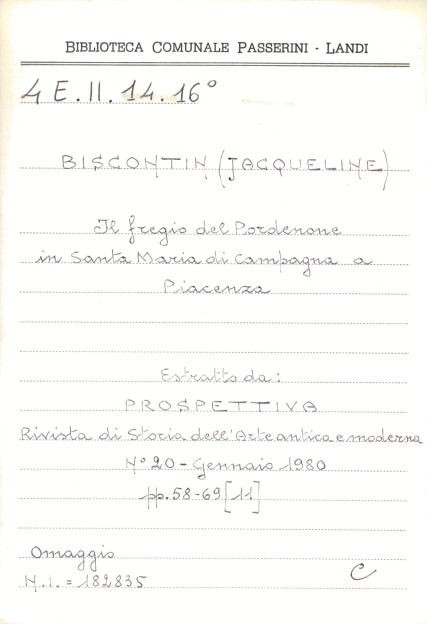 BIBLIOTECA COMUNALE PASSERINI - LANDI
4 E. II. 14. 16°
BISCONTIN (JACQUELINE)
Il fregio del Pordenone
in Santa Maria di Campagna a
Piacenza
Estratto da:
PROSPETTIVA
Rivista di Storia dell'Arte antica e moderna
N° 20 - Gennaio 1980
pp. 58-69 [11]
Omaggio
N.I. = 182835
C